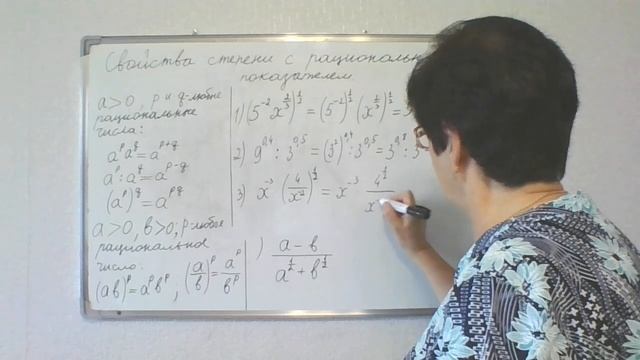 Свойства степени с рациональн
показателем
a>0, p и q-любые
рациональные
числа:
a^p a^q = a^{p+q}
a^p : a^q = a^{p-q}
(a^p)^q = a^{pq}
a>0, b>0, p-любое
рациональное
число:
(ab)^p = a^p b^p, (a/b)^p = a^p/b^p
1) (5^{-2} x^{2/3})^{1/2} = (5^{-2})^{1/2} (x^{2/3})^{1/2} =
2) 9^{0,4} : 3^{0,5} = (3^2)^{0,4} : 3^{0,5} = 3^{0,8} : 3
3) x^{-3} (4/x^2)^{1/2} = x^{-3} 4^{1/2}/x
) (a-b)/(a^{1/2}+b^{1/2})